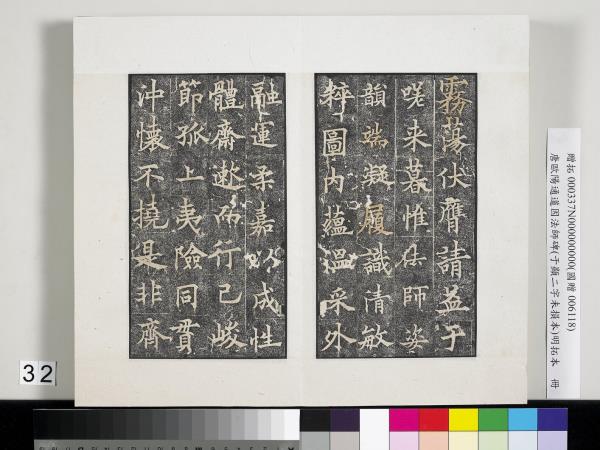 霧蕩伏膺請益于
嗟来暮惟法師姿
韻端凝履識清敏
粹圖内蘊溫采外
融運柔嘉以成性
體齋遬而行己峻
節孤上夷險同貫
沖懷不撓是非齊
贈拓 000337N000000000(國贈 006118)
唐歐陽通道因法師碑(于顯二字未損本)明拓本 冊
32